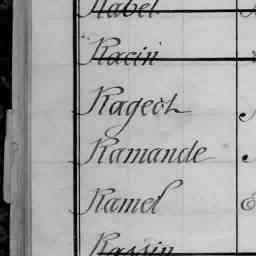 Rabel
Racin
Rageot
Ramande
Ramel
Rassin